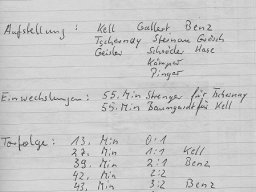 Aufstellung : Kell Gallert Benz
Tschernay Sternau Gräsch
Geisler Schröder Hase
Kämper
Pinger
Einwechslungen : 55. Min Strenger für Tschernay
55. Min Baumgardt für Kell
Torfolge : 13. Min 0:1
27. Min 1:1 Kell
39. Min 2:1 Benz
42. Min 2:2
43. Min 3:2 Benz